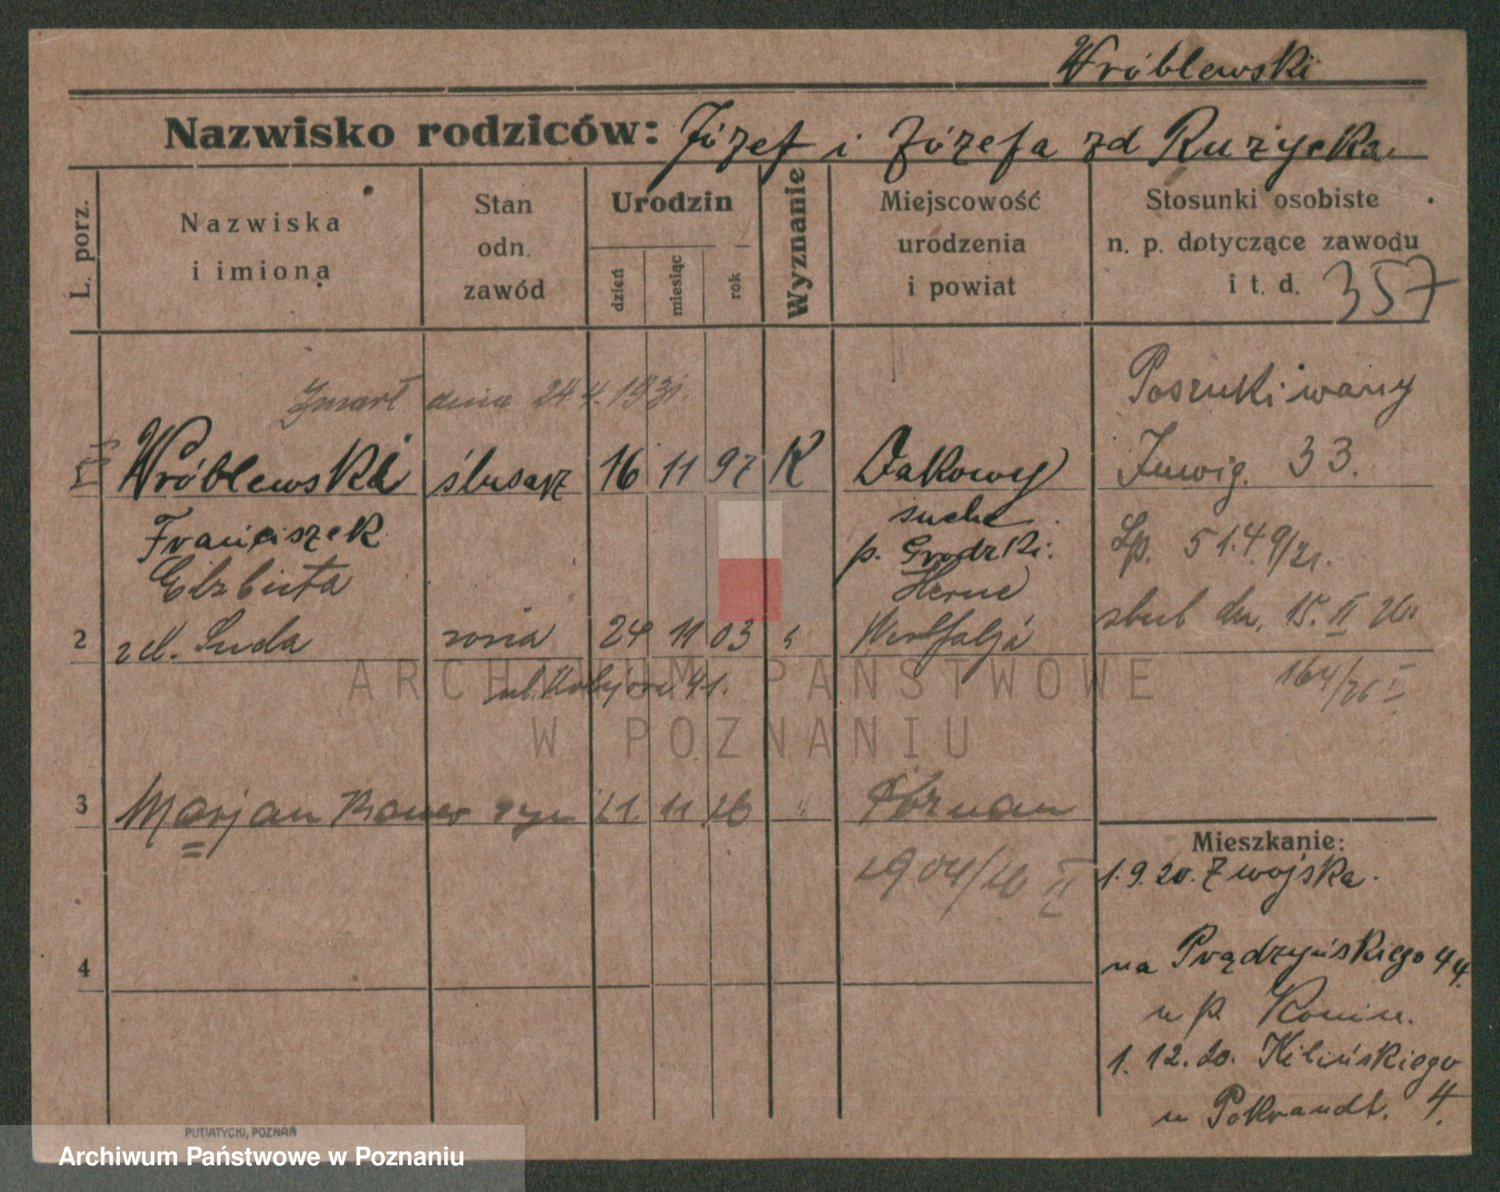 Wróblewski
Nazwisko rodziców: Józef i Józefa zd Rużycka.
L. porz.
Nazwiska
i imiona
Stan
odn.
zawód
Urodzin
dzień
miesiąc
rok
Wyznanie
Miejscowość
urodzenia
i powiat
Stosunki osobiste
n. p. dotyczące zawodu
i t. d.
357
Zmarł dnia 24.4.1931.
Poszukiwany
1 Wróblewski ślusarz 16 11 97 K Dakowy
33.
Franciszek
suche
p. Grodzki.
Lp. 5149/21.
Elzbieta
Herne
ślub dn. 15. II 26
2 zd. Suda żona 24 11 03 " Westfalja
164/26 I
ul. 41.
3 Marjan syn 21 11 26 " Poznan
1904/26 II
4
Mieszkanie:
1.9.20. Z wojska.
na Prądzyńskiego 44.
u p.
1.12.20. Kilińskiego
u Pokrandt. 4.
PUTIATYCKI, POZNAŃ
ARCHIWUM PAŃSTWOWE
W POZNANIU
Archiwum Państwowe w Poznaniu